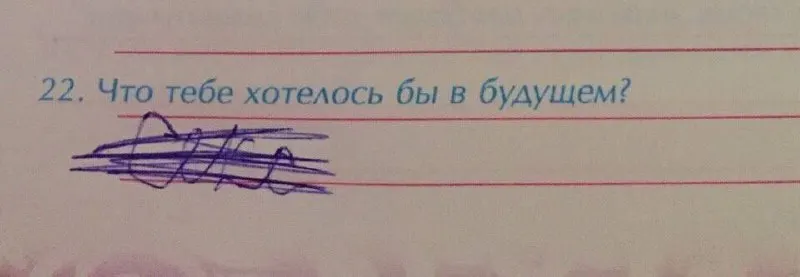 22. Что тебе хотелось бы в будущем?